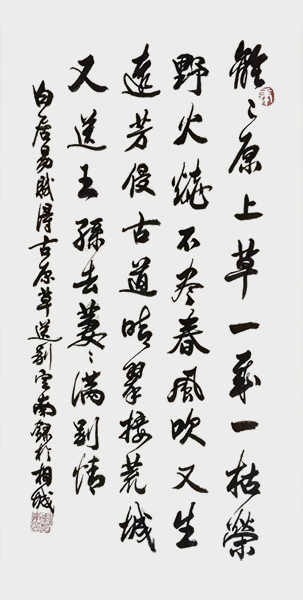 離〻原上草一歲一枯榮
野火燒不尽春風吹又生
遠芳侵古道晴翠接荒城
又送王孫去萋〻滿別情
白居易賦得古原草送別雲南錄於相城